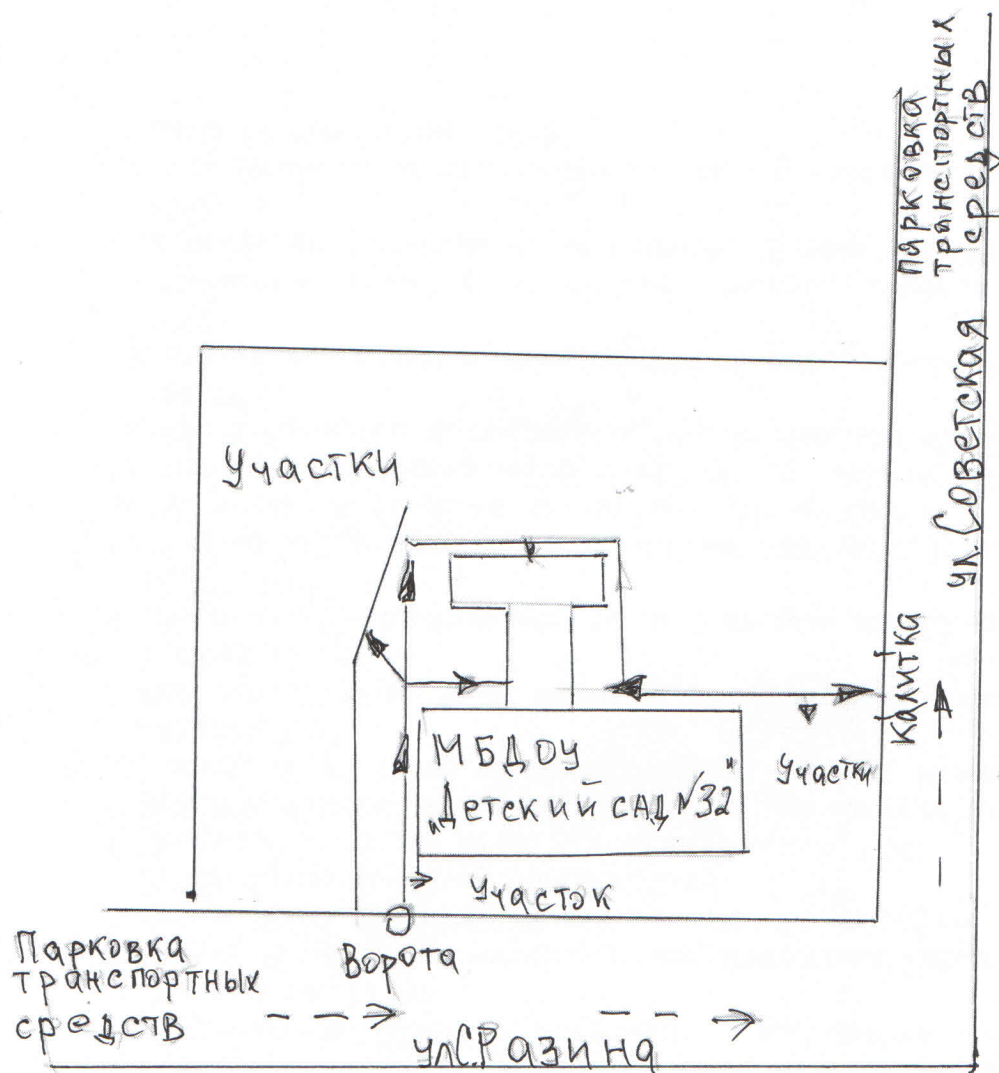 Парковка
транспортных
средств
ул. Советская
Участки
Калитка
МБДОУ
„Детский сад №32"
Участки
Участок
Парковка
транспортных
средств
Ворота
ул.С.Разина